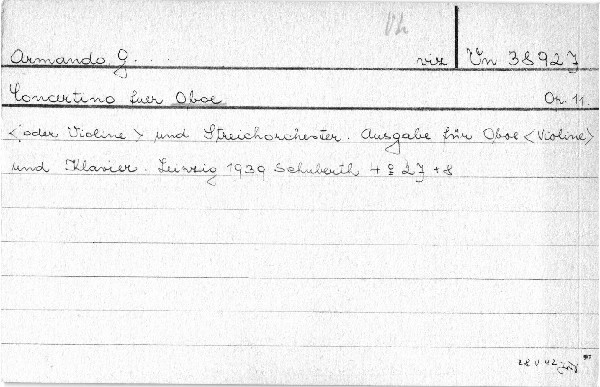 Vh
Armando G.... viz Un 38927
Concertino fuer Oboe Or. 11.
<oder Violine> und Streichorchester. Ausgabe für Oboe <Violine>
und Klavier. Leipzig 1939 Schuberth 4º 27 + 8
28 V 42